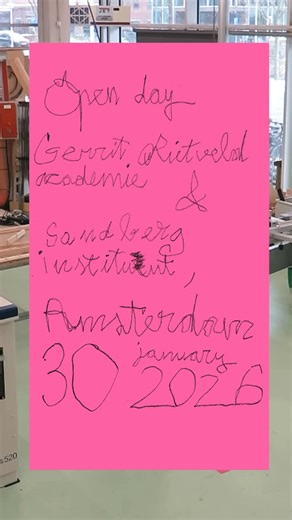 Open day
Gerrit Rietveld
academie &
Sandberg
instituut,
Amsterdam
30 january 2026
s520